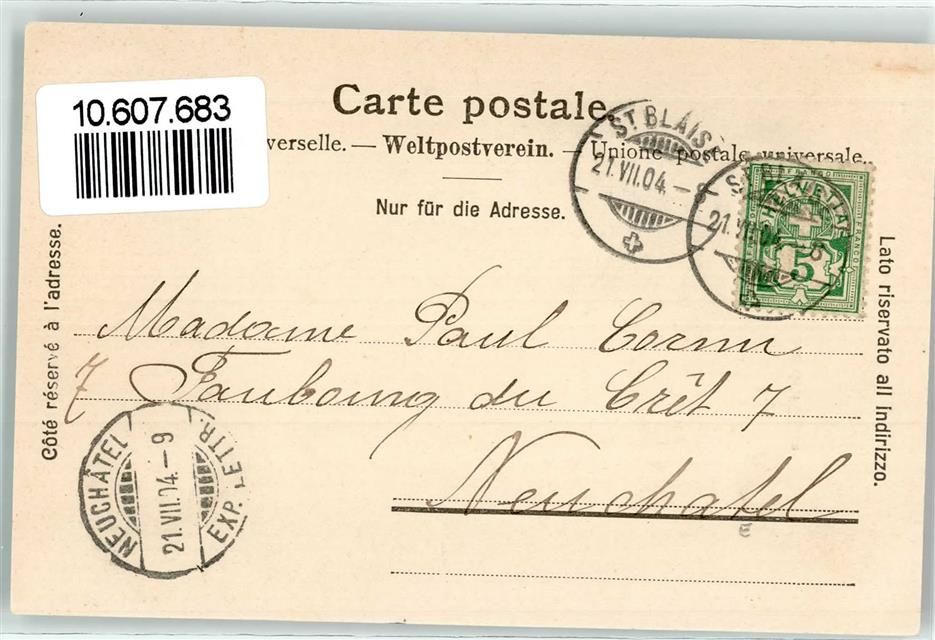 10.607.683
Carte postale.
verselle. — Weltpostverein. — Unione postale universale.
Nur für die Adresse.
Côté réservé à l'adresse.
Lato riservato all indirizzo.
ST BLAISE
21.VII.04. – 8
21.VII.04. – 8
FRANCO
HELVETIA
5
FRANCO
Madame Paul Cornu
7 Faubourg du Crêt 7
Neuchatel
E
NEUCHÂTEL
21.VII.04. – 9
EXP. LETTR.